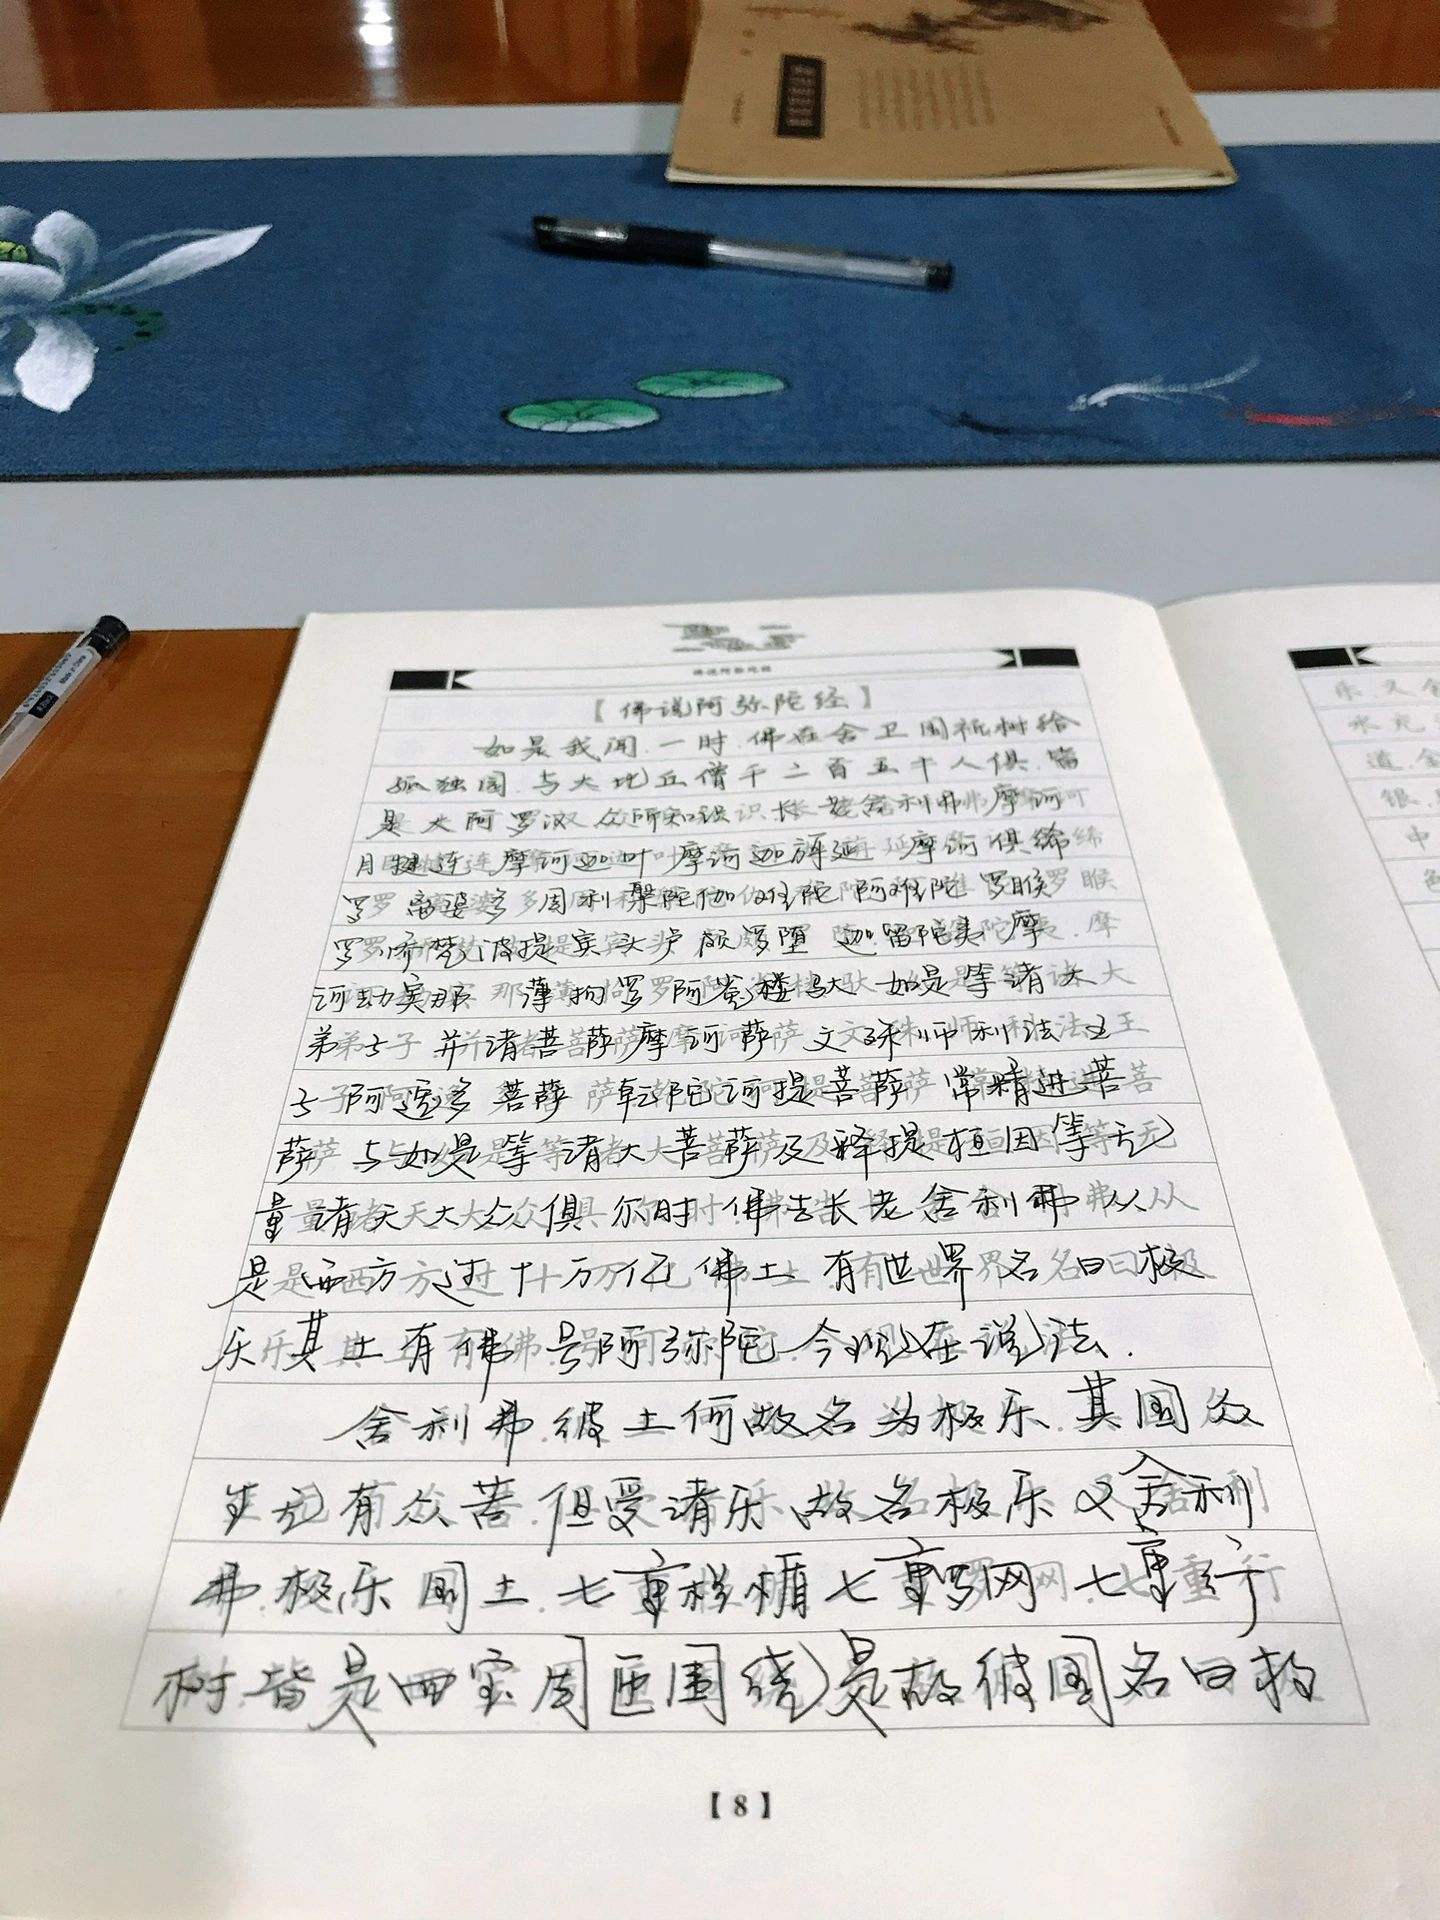 佛说阿弥陀经
【佛说阿弥陀经】
如是我闻.一时.佛在舍卫国祇树给
孤独园.与大比丘僧千二百五十人俱.皆
是大阿罗汉众所知识长老舍利弗摩诃
目犍连 摩诃迦叶摩诃迦旃延 摩诃俱絺
罗 离婆多周利槃陀伽难陀阿难陀罗睺
罗㤭梵波提宾头卢颇罗堕 迦留陀夷 摩
诃劫宾那 薄拘罗阿㝹楼驮 如是等诸大
弟子 并诸菩萨摩诃萨 文殊师利法王
子 阿逸多菩萨 乾陀诃提菩萨 常精进菩
萨 与如是等诸大菩萨及释提桓因等无
量诸天大众俱 尔时佛告长老舍利弗从
是西方过十万亿佛土 有世界名曰极
乐其土有佛号阿弥陀.今现在说法.
舍利弗.彼土何故名为极乐.其国众
生无有众苦.但受诸乐.故名极乐 又舍利
弗.极乐国土.七重栏楯七重罗网.七重行
树.皆是四宝周匝围绕是故彼国名曰极
【8】
乐.又舍
水充
道.金
银.
中